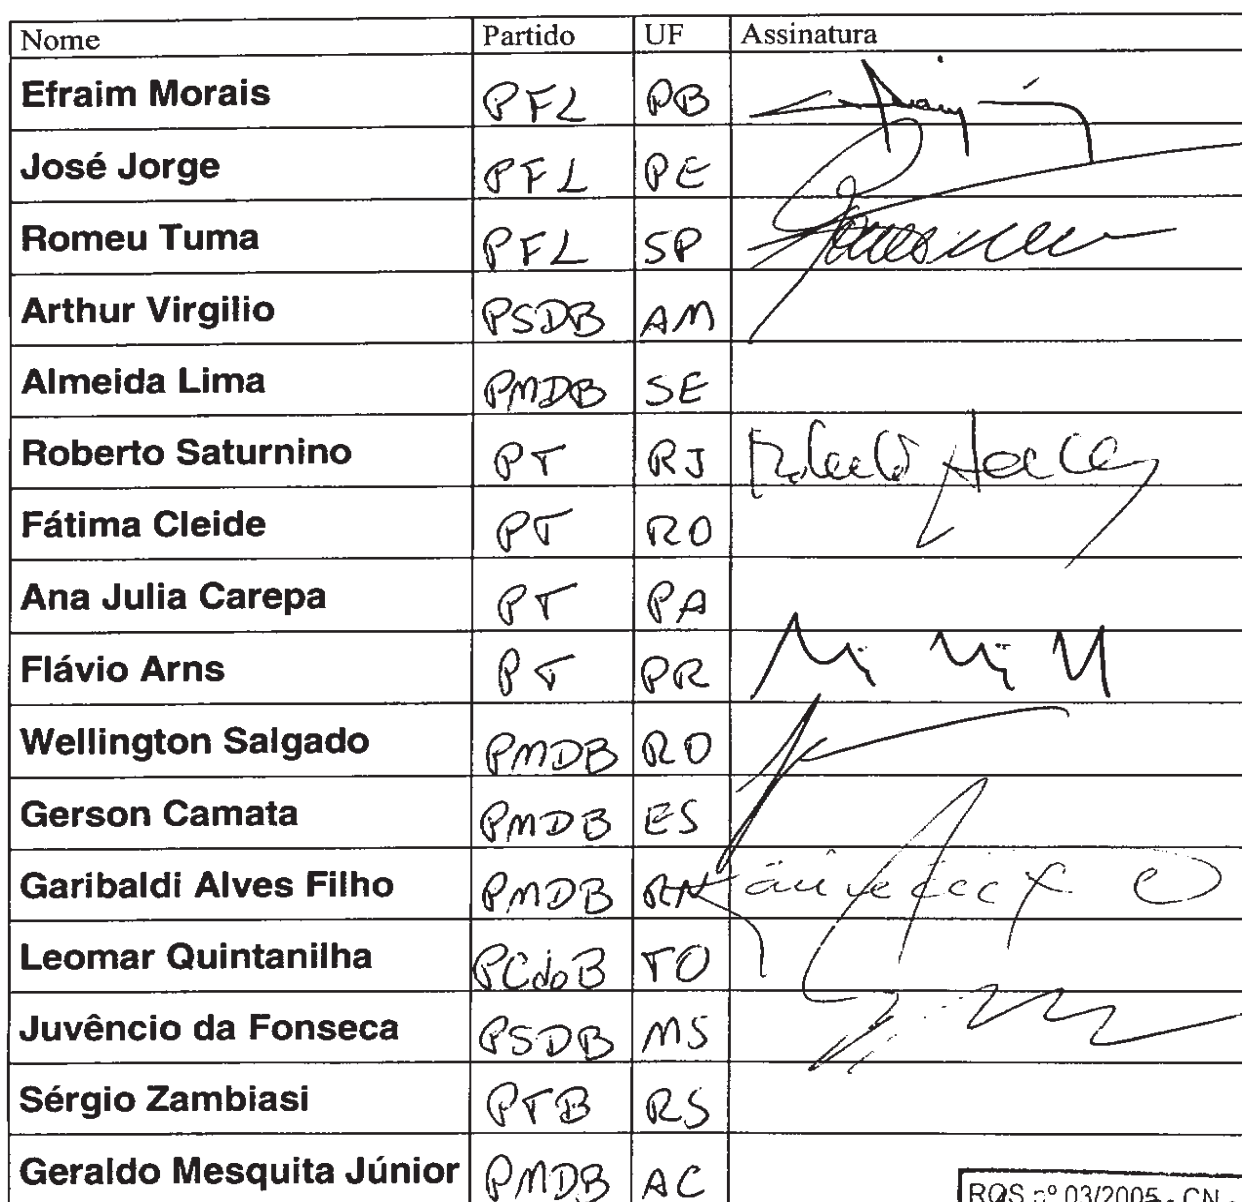 Nome Partido UF Assinatura
Efraim Morais PFL PB
José Jorge PFL PE
Romeu Tuma PFL SP
Arthur Virgilio PSDB AM
Almeida Lima PMDB SE
Roberto Saturnino PT RJ
Fátima Cleide PT RO
Ana Julia Carepa PT PA
Flávio Arns PT PR
Wellington Salgado PMDB RO
Gerson Camata PMDB ES
Garibaldi Alves Filho PMDB RN
Leomar Quintanilha PCdoB TO
Juvêncio da Fonseca PSDB MS
Sérgio Zambiasi PTB RS
Geraldo Mesquita Júnior PMDB AC
RQS nº 03/2005 - CN -